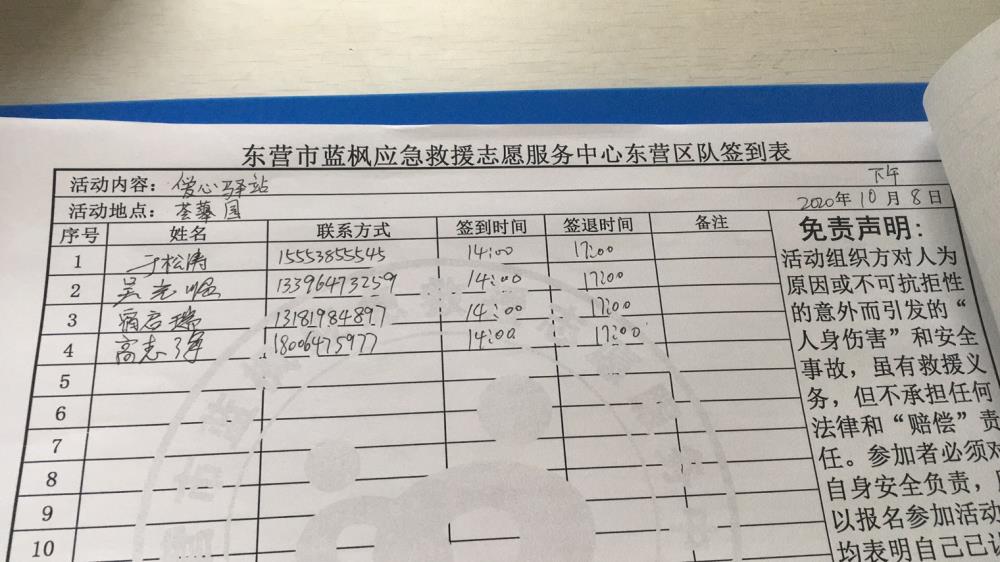 东营市蓝枫应急救援志愿服务中心东营区队签到表
活动内容：爱心驿站
下午
活动地点：荟萃园
2020年10月8日
序号 姓名 联系方式 签到时间 签退时间 备注
1 于松涛 15553855545 14:00 17:00
2 吴 13396473259 14:00 17:00
3 宿启瑞 13181984897 14:00 17:00
4 高志军 18006475977 14:00 17:00
5
6
7
8
9
10
免责声明：
活动组织方对人为
原因或不可抗拒性
的意外而引发的“
人身伤害”和安全
事故，虽有救援义
务，但不承担任何
法律和“赔偿”责
任。参加者必须对
自身安全负责，
以报名参加活动
均表明自己已